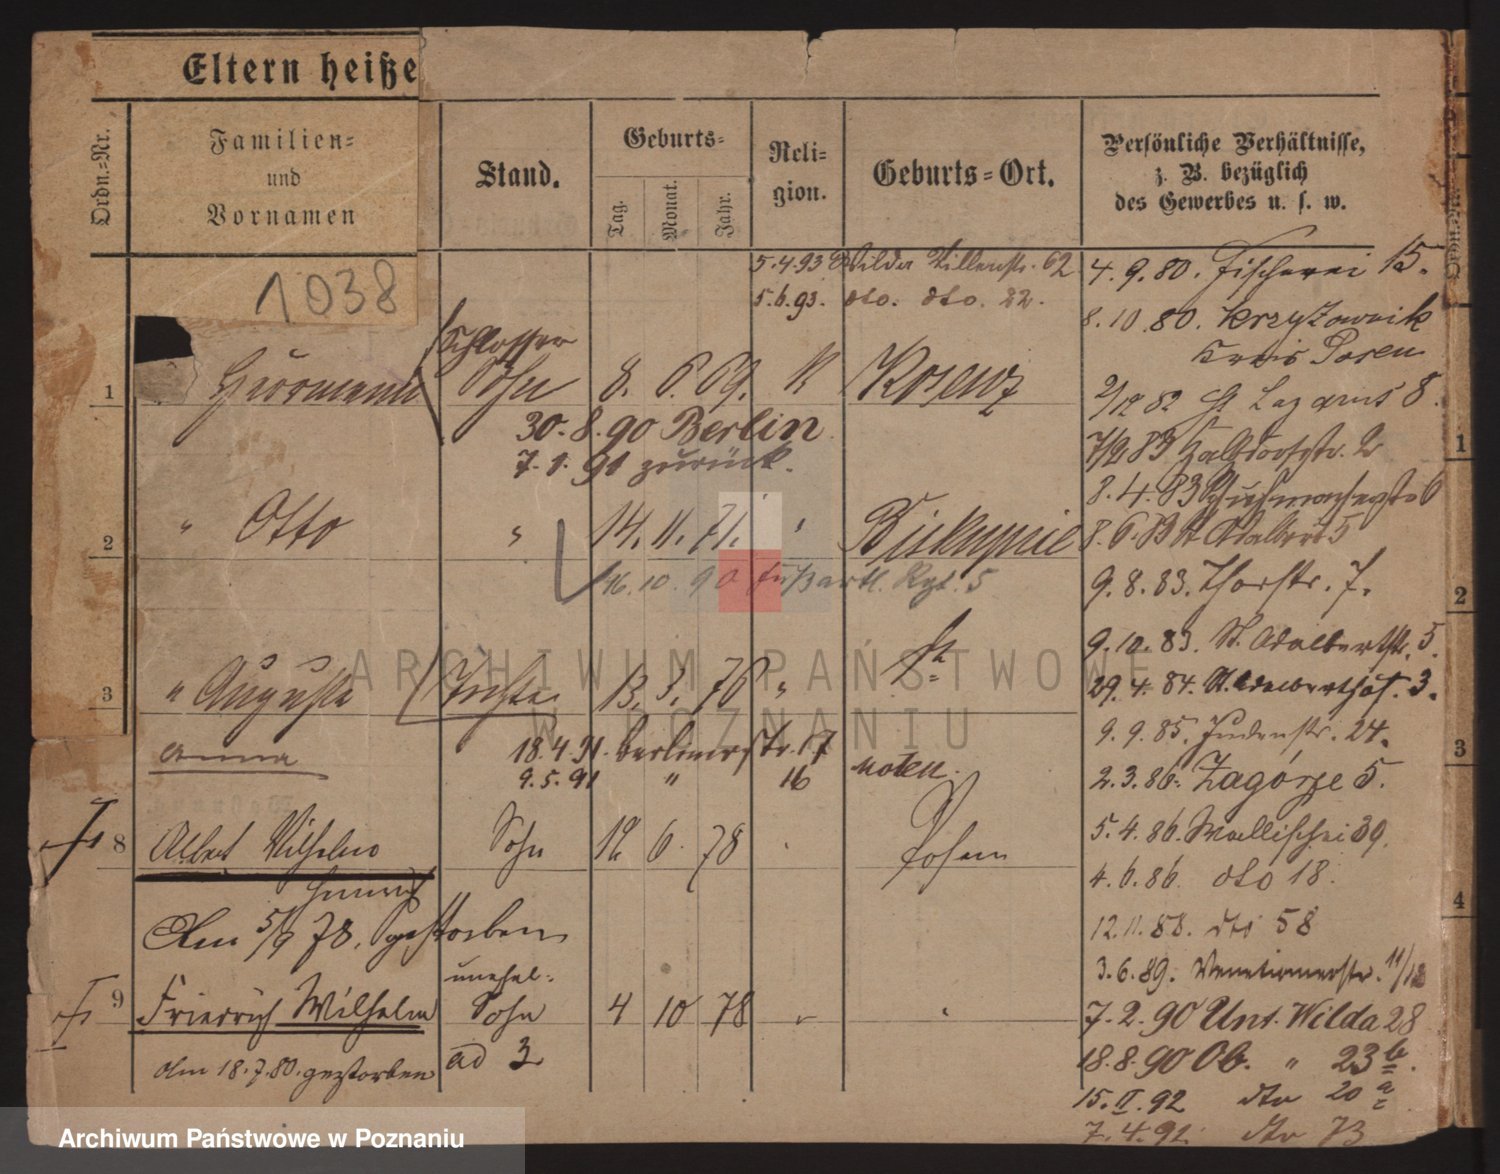 Eltern heiße
Ordn.-Nr.
Familien-
und
Vornamen
Stand.
Geburts-
Tag.
Monat.
Jahr.
Reli-
gion.
Geburts-Ort.
Persönliche Verhältnisse,
z. B. bezüglich
des Gewerbes u. s. w.
1038
5.4.93 Wilda Villenstr. 62
5.6.93. dto. dto. 22.
Schlosser
1 Herrmann Sohn 8. 6 69. K
30.8.90 Berlin
7.1.91 zurück.
2 " Otto " 14. 11. 71. Biskupice
16.10.90 Fußartl. Rgt. 5
3 " Auguste 13. 3. 76 "
Anna
18.4.91. Berlinerstr. 17
9.5.91 " 16
8 Albert Wilhelm Sohn 12 6. 78 Posen
Am 5/9 78. gestorben
unehel.
9 Friedrich Wilhelm Sohn 4 10 78
Am 18.7.80. gestorben ad 3
4.9.80. Fischerei 15.
8.10.80. Krzyżownik
Kreis Posen
2/12 82 St Lazarus 8.
7/2 83 Halbdorfstr. 2
8.4.83 Schuhmacherstr 6
8.6.83 St Adalbert 5
9.8.83. Thorstr. 7.
9.10.83. St. Adalbertstr. 5.
29.4.84. St. Adalbertstr. 3.
9.9.85. Judenstr. 24.
2.3.86. Zagórze 5.
5.4.86. Wallischei 39.
4.6.86. dto 18.
12.11.88. dto 58
3.6.89. Venetianerstr. 11/12
7.2.90 Unt. Wilda 28
18.8.90 Ob. " 23 b.
15.II.92 dto 20 a
7.4.92 dto 73
1
2
3
4
ARCHIWUM PAŃSTWOWE
W POZNANIU
Archiwum Państwowe w Poznaniu